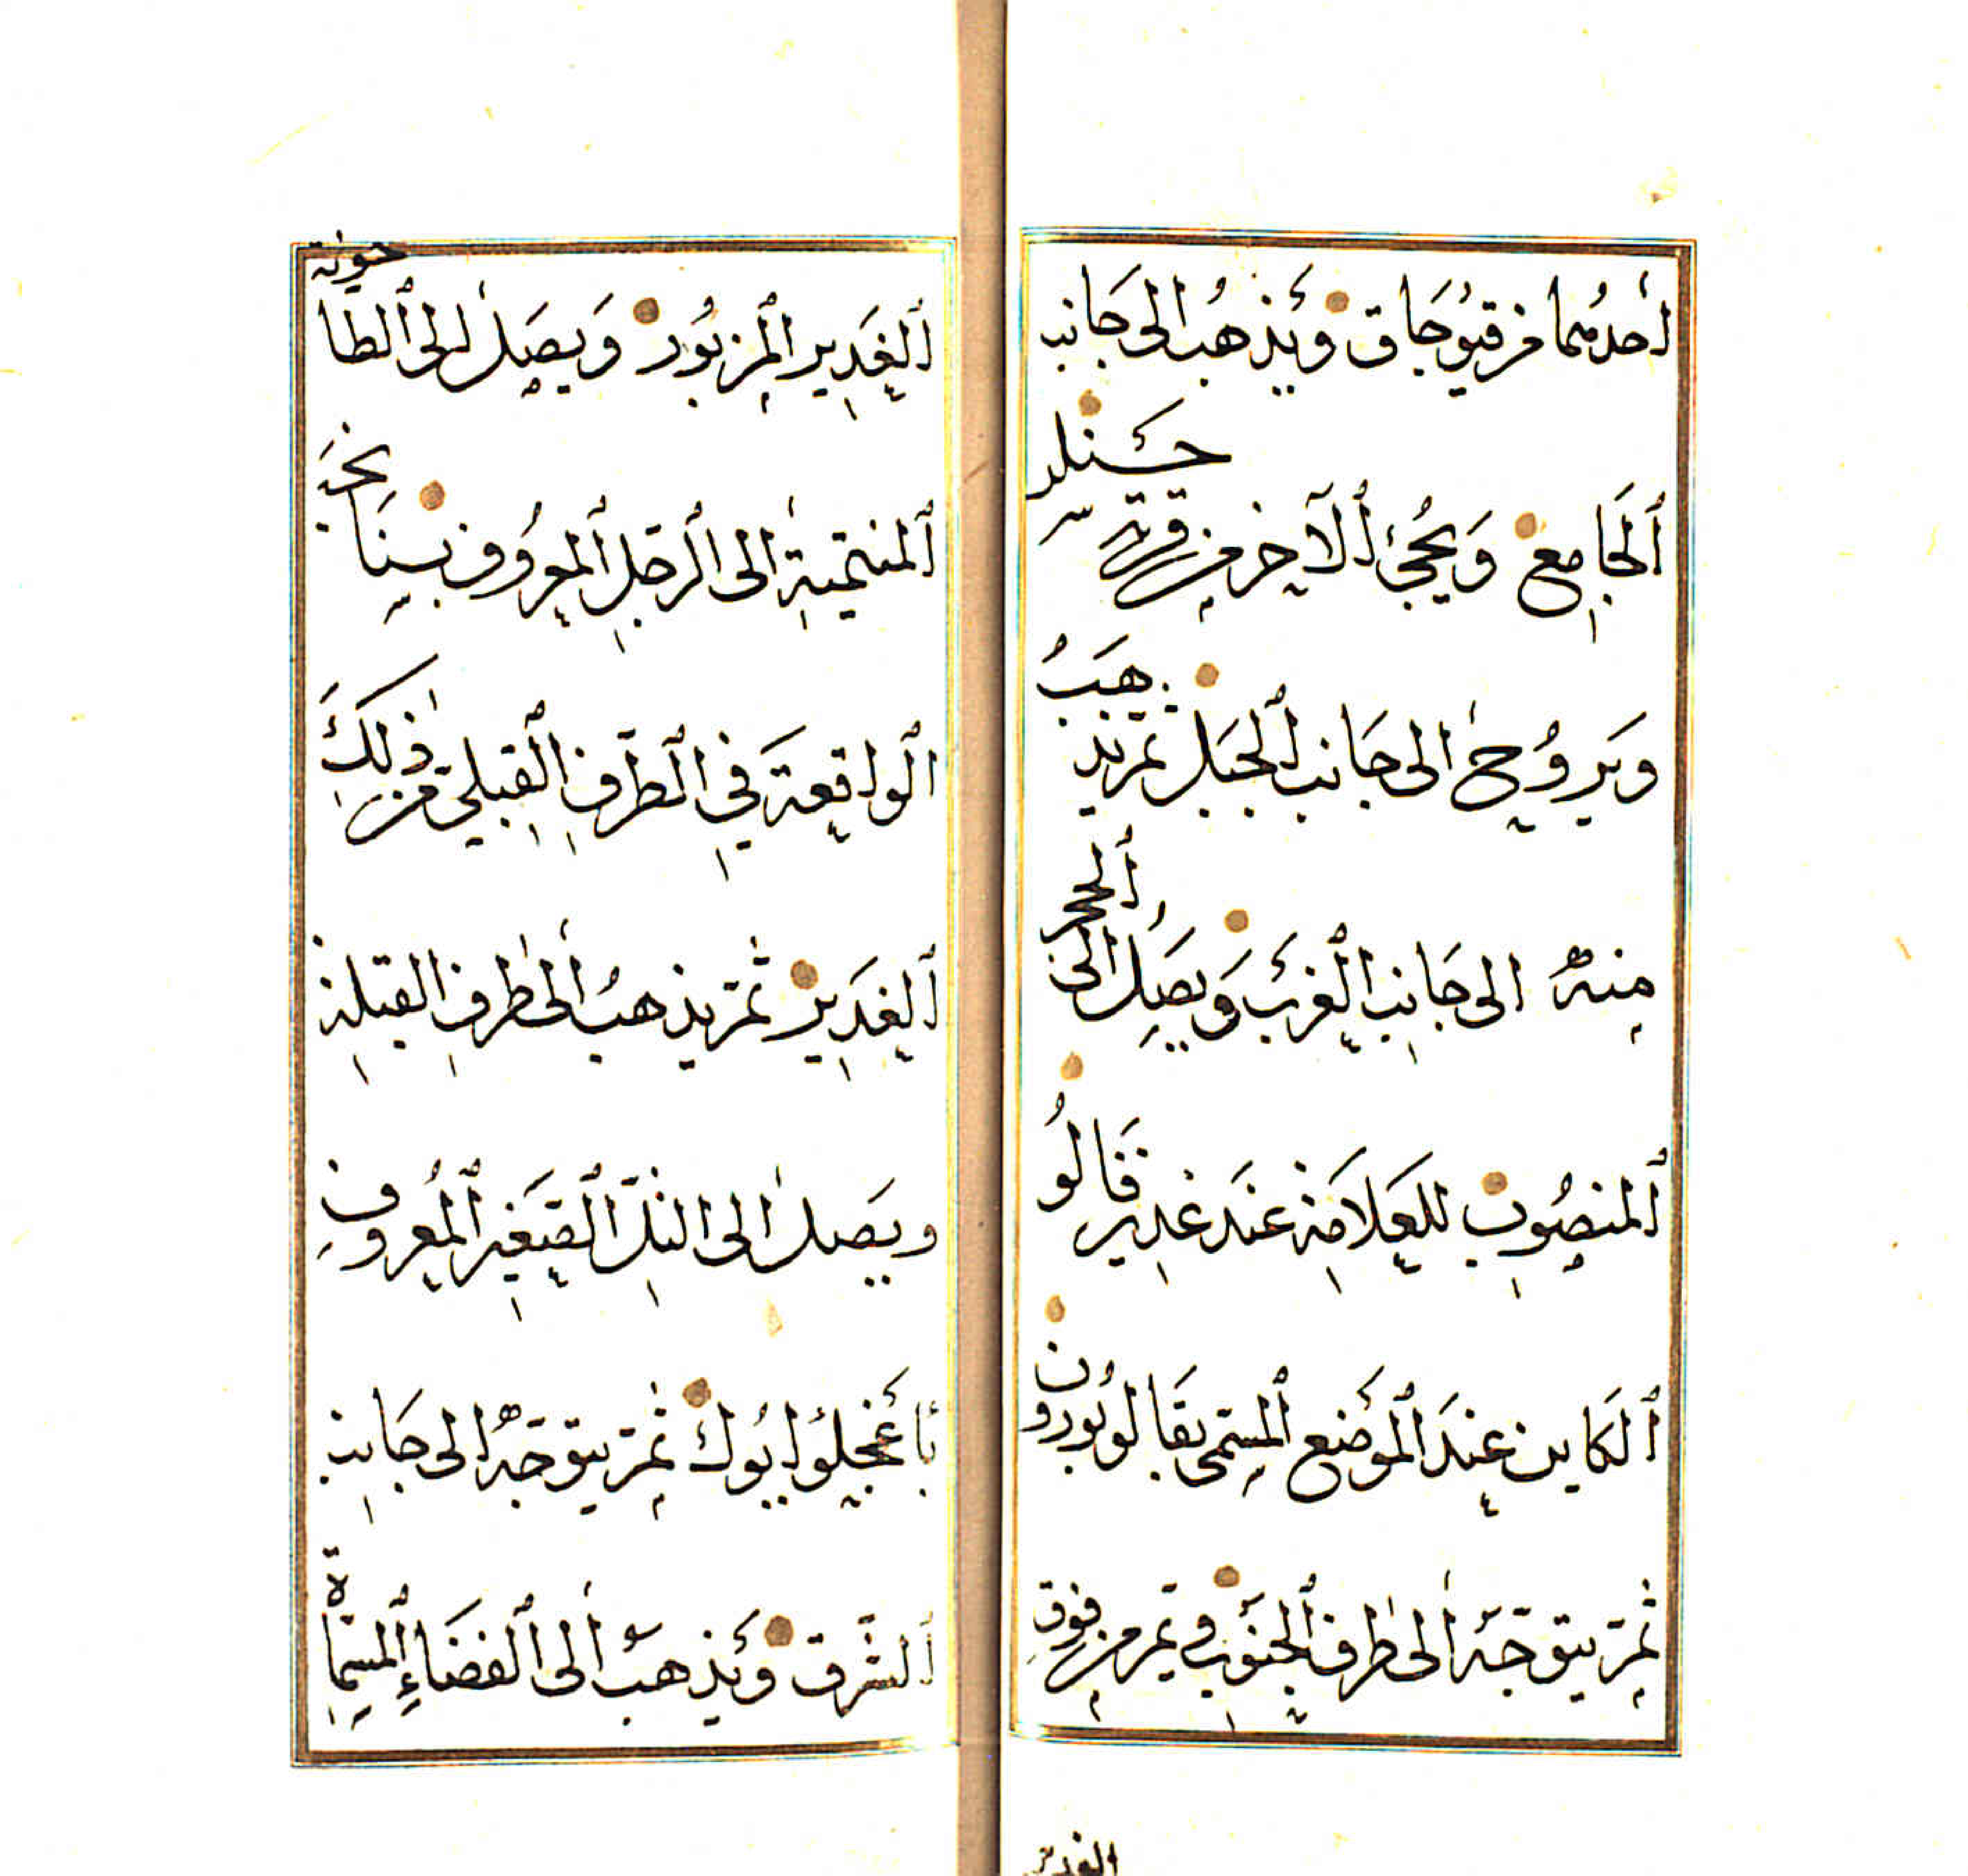 أحدهما من قيوجاق ويذهب الى جانب
الجامع ويجئ الآخر من قرية حسنلر
ويروح الى جانب الجبل ثم يذهب
منه الى جانب الغرب ويصل الى الحجر
المنصوب للعلامة عند غدير قالو
الكاين عند الموضع المسمى بقالوبورون
ثم يتوجه الى طرف الجنوب ويمر من فوق
الغدير
الغدير المزبور ويصل الى الطاحونة
المنتمية الى الرجل المعروف بسنان
الواقعة في الطرف القبلي من ذلك
الغدير ثم يذهب الى طرف القبلة
ويصل الى التل الصغير المعروف
ثم يتوجه الى جانب
الشرق ويذهب الى الفضاء المسماة